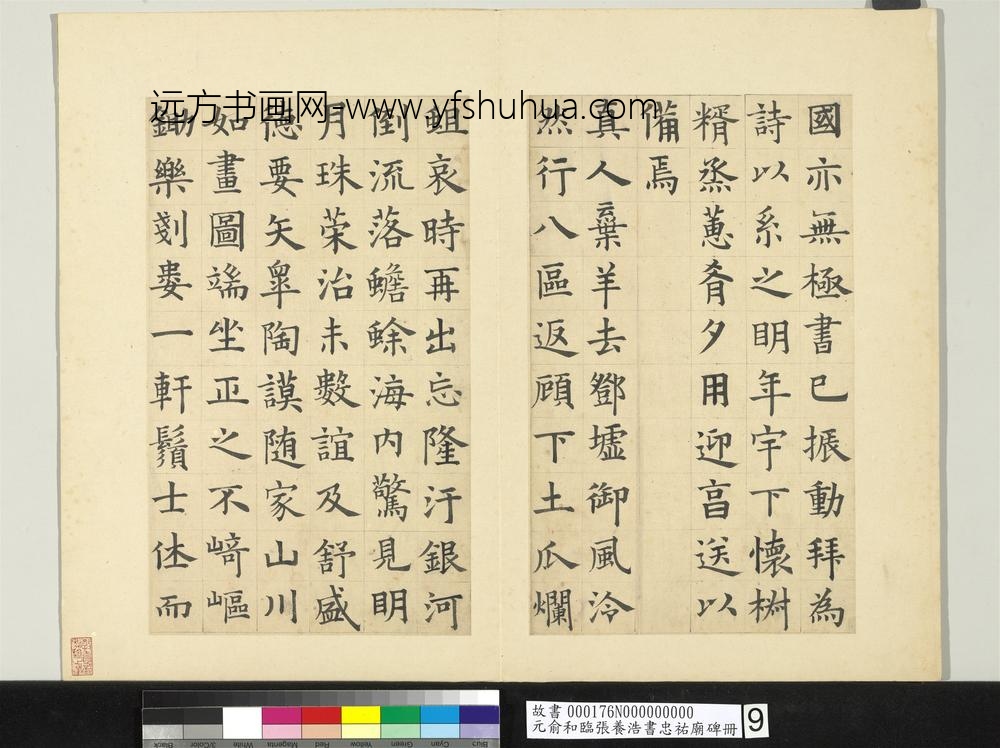 远方书画网-www.yfshuhua.com
國亦無極書已振動拜為
詩以系之明年宇下懷椒
糈烝蕙肴夕用迎亯送以
俻焉
真人棄羊去鄧墟御風泠
然行八區返顧下土瓜爛
蛆哀時再出忘隆汙銀河
倒流落蟾蜍海内驚見明
月珠荣治未數誼及舒盛
德要矢皋陶謨随家山川
如畫圖端坐正之不崎嶇
鋤樂剗婁一軒鬚士休而
故書 000176N000000000
元俞和臨張養浩書忠祐廟碑冊
9
Black
3/Color
White
Magenta
Red
Yellow
Green
Cyan
Blue